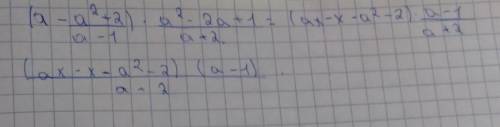 (a - a²+2 / a - 1) · a² - 2a + 1 / a + 2 = (ax - x - a² - 2) · a - 1 / a + 2
(ax - x - a² - 2) (a - 1) / a - 2